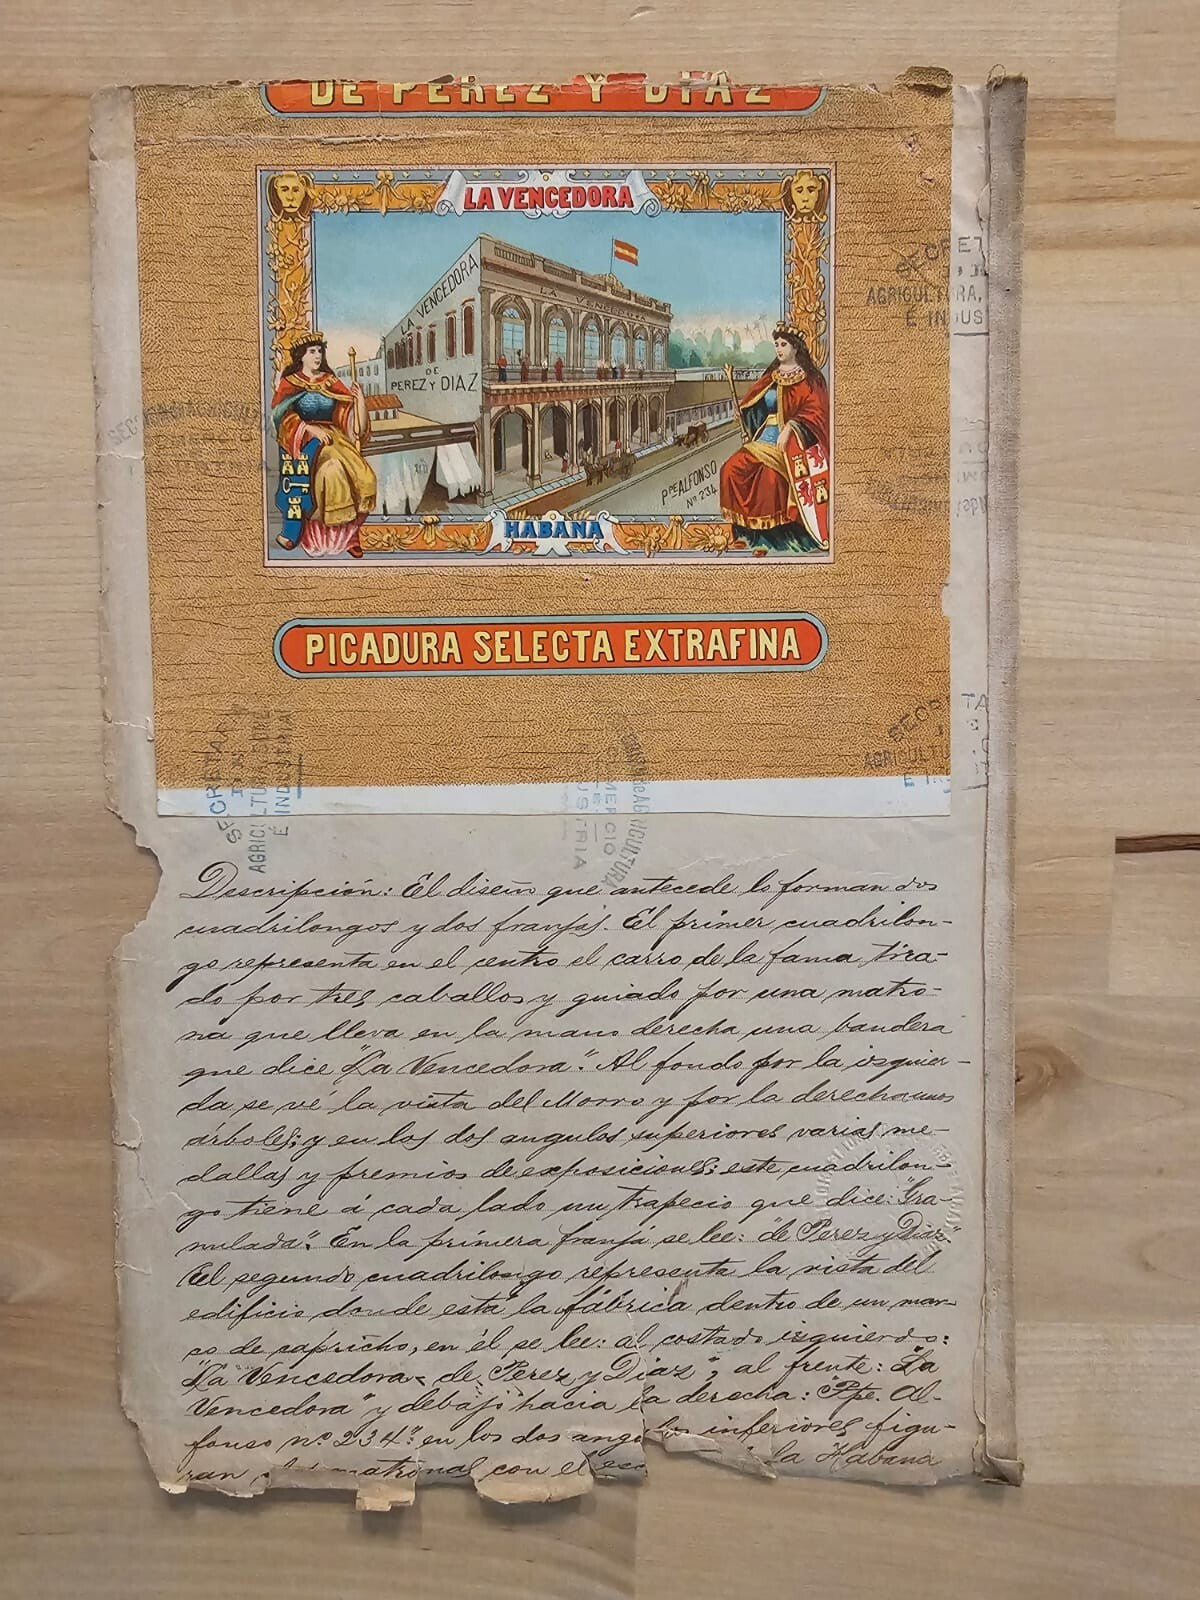 DE PEREZ Y DIAZ
LA VENCEDORA
LA VENCEDORA
LA VENCEDORA
DE
PEREZ Y DIAZ
Ppe ALFONSO
Nº 234
HABANA
PICADURA SELECTA EXTRAFINA
AGRICULTURA,
É INDUS
SECRETA
AGRICULTU
SECRETAR
AGRICULTURA,
É INDUSTRIA
AGRICULTURA
Descripción: El diseño que antecede lo forman dos
cuadrilongos y dos franjas. El primer cuadrilon-
go representa en el centro el carro de la fama tira-
do por tres caballos y guiado por una matro-
na que lleva en la mano derecha una bandera
que dice "La Vencedora". Al fondo por la izquier-
da se vé la vista del Morro y por la derecha unos
árboles; y en los dos angulos superiores varias me-
dallas y premios de exposiciones; este cuadrilon-
go tiene á cada lado un trapecio que dice: "Gra-
nulada". En la primera franja se lee: "de Perez y Diaz"
El segundo cuadrilongo representa la vista del
edificio donde está la fábrica dentro de un mar-
co de capricho, en él se lee: al costado izquierdo:
"La Vencedora de Perez y Diaz", al frente: "La
Vencedora" y debajo hacia la derecha: "Ppe. Al-
fonso nº 234" en los dos angulos inferiores figu-
ran matronas con el esc la Habana